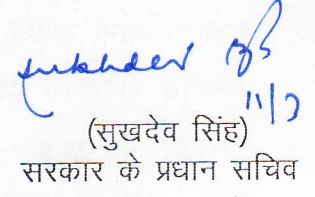 sukhdev
11/7
(सुखदेव सिंह)
सरकार के प्रधान सचिव